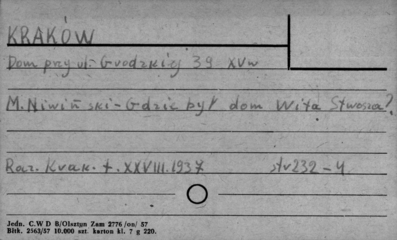 KRAKÓW
Dom przy ul. Grodzkiej 39 XVw
M. Niwiński - Gdzie był dom Wita Stwosza?
Roz. Krak. t. XXVIII. 1937 str 232 - 4
Jedn. C.W D B/Olsztyn Zam 2776 /on/ 57
Bitk. 2563/57 10.000 szt. karton kl. 7 g 220.